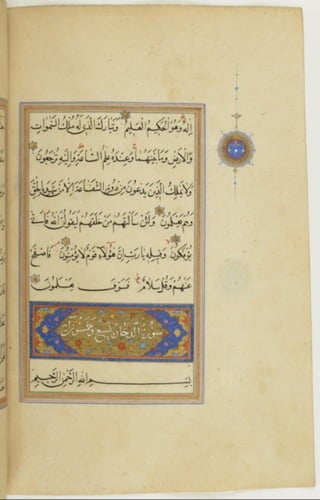 إِلهٌ وَهُوَ الْحَكِيمُ الْعَلِيمُ وَتَبَارَكَ الَّذِي لَهُ مُلْكُ السَّمٰوَاتِ
وَالْأَرْضِ وَمَا بَيْنَهُمَا وَعِنْدَهُ عِلْمُ السَّاعَةِ وَإِلَيْهِ تُرْجَعُونَ
وَلَا يَمْلِكُ الَّذِينَ يَدْعُونَ مِنْ دُونِهِ الشَّفَاعَةَ إِلَّا مَنْ شَهِدَ بِالْحَقِّ
وَهُمْ يَعْلَمُونَ وَلَئِنْ سَأَلْتَهُمْ مَنْ خَلَقَهُمْ لَيَقُولُنَّ اللهُ فَأَنّٰى
يُؤْفَكُونَ وَقِيلِهِ يَا رَبِّ إِنَّ هٰؤُلَاءِ قَوْمٌ لَا يُؤْمِنُونَ فَاصْفَحْ
عَنْهُمْ وَقُلْ سَلَامٌ فَسَوْفَ يَعْلَمُونَ
سورة الدخان تسع وخمسون
بِسْمِ اللهِ الرَّحْمٰنِ الرَّحِيمِ